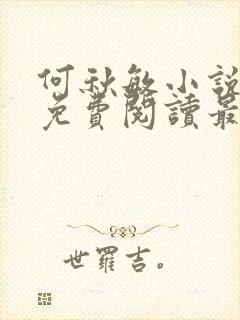 何秋敏小說
免費閱讀最
世羅吉。